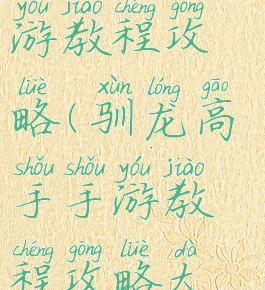 yóu jiào chéng gōng
游教程攻
lüè xùn lóng gāo
略(驯龙高
shǒu shǒu yóu jiào
手手游教
chéng gōng lüè dà
程攻略大